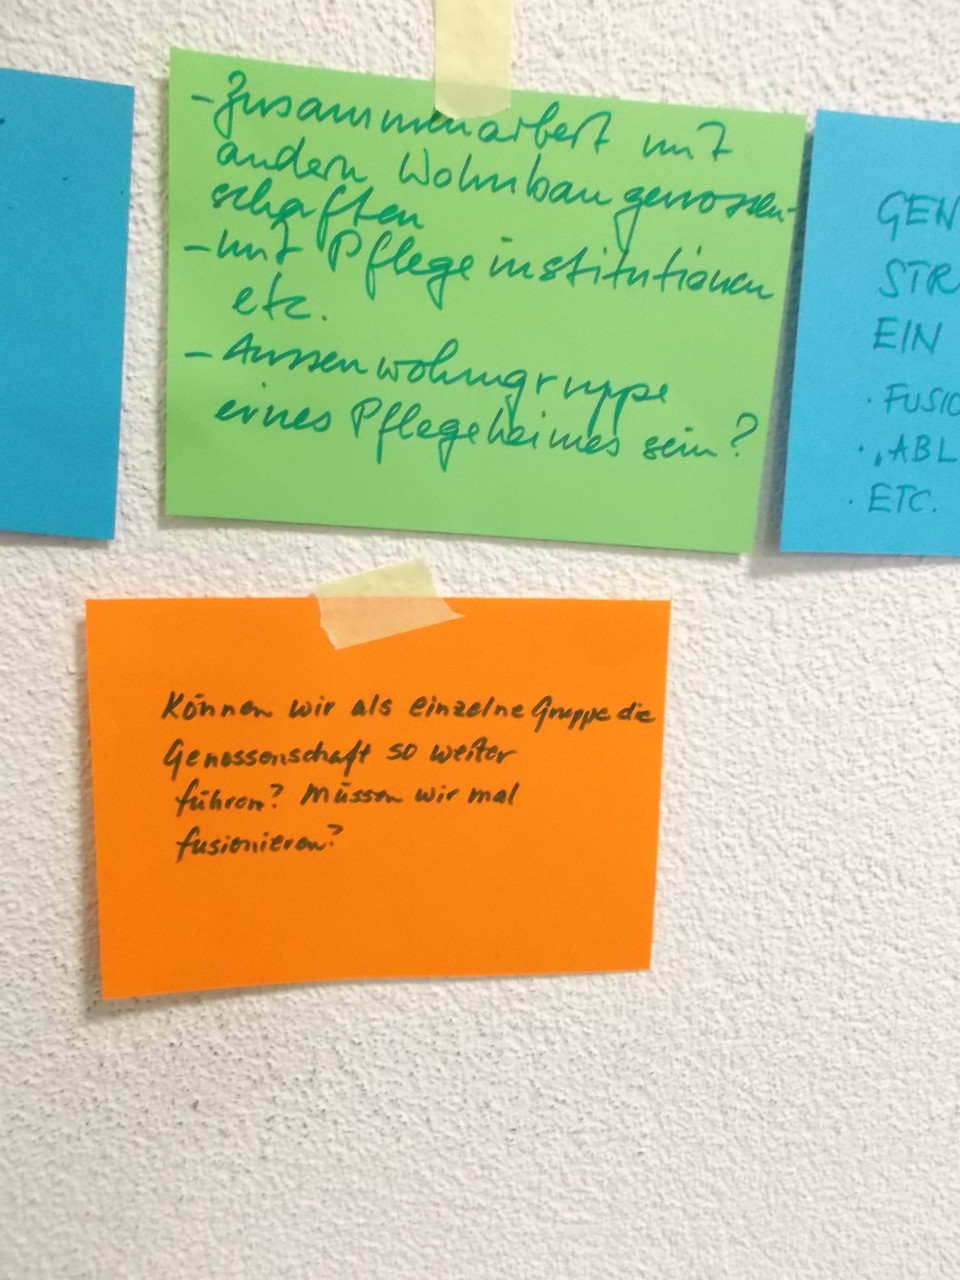 - Zusammenarbeit mit
andern Wohnbaugenossen-
schaften
- mit Pflegeinstitutionen
etc.
- Aussenwohngruppe
eines Pflegeheimes sein?
GEN
STR
EIN
· FUSIO
· „ABL
· ETC.
Können wir als einzelne Gruppe die
Genossenschaft so weiter
führen? Müssen wir mal
fusionieren?